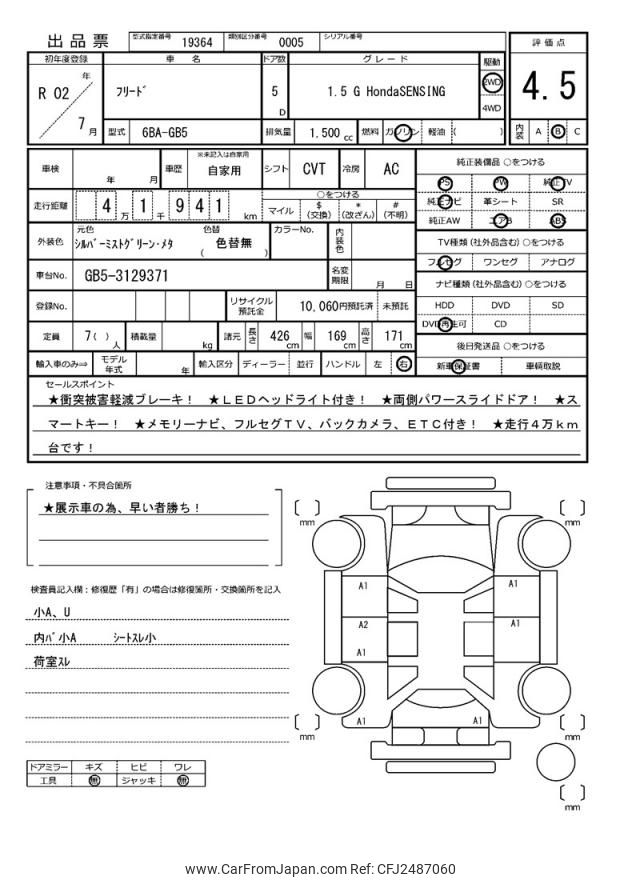 出品票
型式指定番号 19364 類別区分番号 0005 シリアル番号
評価点
初年度登録 車名 ドア数 グレード 駆動
R 02 年 7 月
フリード 5 D 1.5 G HondaSENSING 2WD 4WD
4.5
型式 6BA-GB5 排気量 1.500 cc 燃料 ガソリン 軽油 ( )
内装 A B C
車検 年 月 車歴 ※未記入は自家用 自家用 シフト CVT 冷房 AC
純正装備品 ○をつける
PS PW 純正TV
走行距離 4 万 1 千 9 4 1 km
○をつける
マイル $ (交換) * (改ざん) # (不明)
純正ナビ 革シート SR
純正AW エアB ABS
外装色 元色 シルバーミストグリーン・メタ 色替 ( 色替無 ) カラーNo. 内装色
TV種類 (社外品含む) ○をつける
フルセグ ワンセグ アナログ
車台No. GB5-3129371 名変期限 月 日
ナビ種類 (社外品含む) ○をつける
登録No. リサイクル預託金 10,060円預託済 未預託
HDD DVD SD
DVD再生可 CD
定員 7( ) 人 積載量 kg 諸元 長さ 426 cm 幅 169 cm 高さ 171 cm
後日発送品 ○をつける
輸入車のみ⇒ モデル年式 年 輸入区分 ディーラー 並行 ハンドル 左 右
新車保証書 車輌取説
セールスポイント
★衝突被害軽減ブレーキ! ★LEDヘッドライト付き! ★両側パワースライドドア! ★ス
マートキー! ★メモリーナビ、フルセグTV、バックカメラ、ETC付き! ★走行4万km
台です!
注意事項・不具合箇所
★展示車の為、早い者勝ち!
検査員記入欄:修復歴「有」の場合は修復箇所・交換箇所を記入
小A、U
内バ小A シートスレ小
荷室スレ
ドアミラー キズ ヒビ ワレ
工具 無 ジャッキ 無
mm mm
A1 A1
A2 A1
A1
A1 A1
mm mm
mm
www.CarFromJapan.com Ref: CFJ2487060